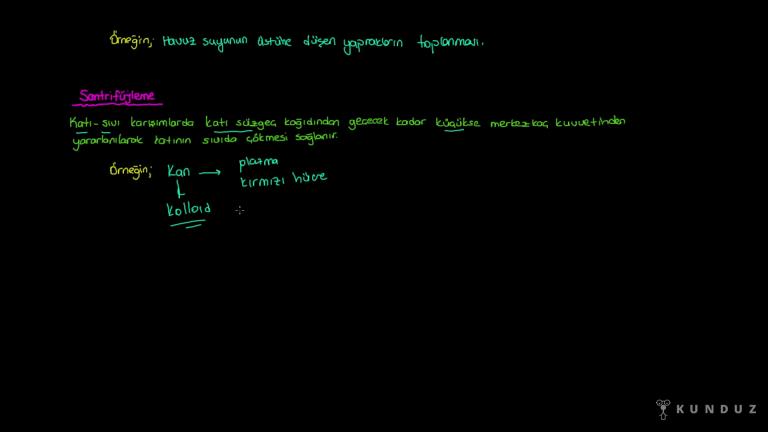 Örneğin; Havuz suyunun üstüne düşen yaprakların toplanması.
Santrifüjleme
Katı-sıvı karışımlarda katı süzgeç kağıdından geçecek kadar küçükse merkezkaç kuvvetinden
yararlanılarak katının sıvıda çökmesi sağlanır.
Örneğin; Kan → plazma
kırmızı hücre
Kolloid
KUNDUZ